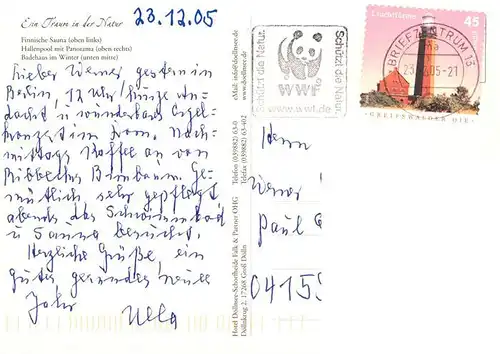 Ein Traum in der Natur
23.12.05
Finnische Sauna (oben links)
Hallenpool mit Panorama (oben rechts)
Badehaus im Winter (unten mitte)
Lieber Werner, gestern in
Berlin, 12 Uhr kurze An-
dacht u. wunderbares Orgel-
konzert im Dom. Nach-
mittags Kaffee an von
Ribbecks Birnbaum. Ge-
mütlich, sehr gepflegt
abends das Schwimmbad
u. Sauna besucht.
Herzliche Grüße, ein
gutes gesundes neues
Jahr
Hotel Döllnsee-Schorfheide Falk & Partner OHG
Döllnkrug 2, 17268 Groß Dölln
Telefon (039882) 63-0
Telefax (039882) 63-402
eMail: info@doellnsee.de
www.doellnsee.de
Schützt die Natur.
WWF
www.wwf.de
Schützt die Natur.
Leuchttürme
45
GREIFSWALDER OIE
BRIEFZENTRUM 13
05-21
Herrn
Werner
Paul G
0415